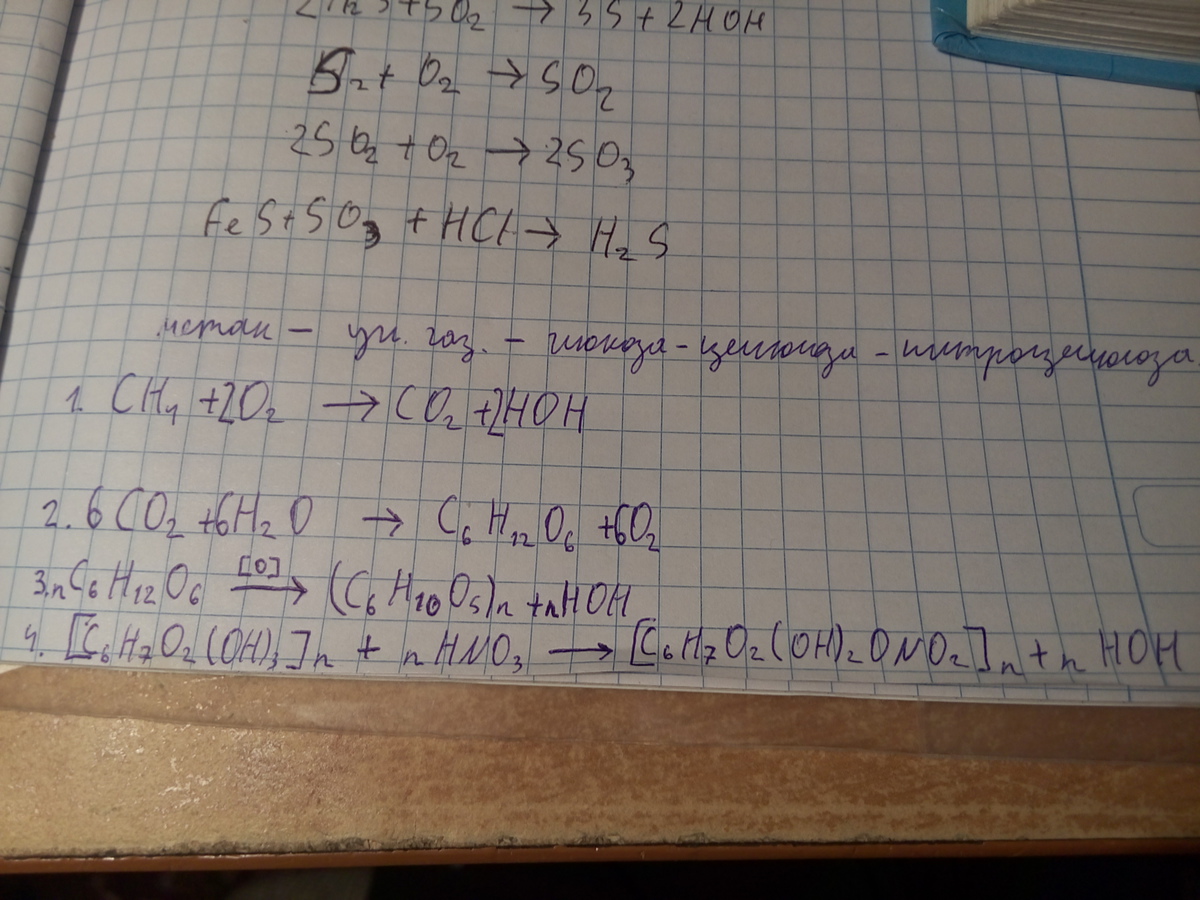 S + SO₂ → 3S + 2HOH
S₂ + O₂ → SO₂
2SO₂ + O₂ → 2SO₃
FeS + SO₃ + HCl → H₂S
метан – уги. газ. – глюкоза – целлюлоза – нитроцеллюлоза
1. CH₄ + 2O₂ → CO₂ + 2HOH
2. 6CO₂ + 6H₂O → C₆H₁₂O₆ + 6O₂
3. nC₆H₁₂O₆ [O]→ (C₆H₁₀O₅)n + nHOH
4. [C₆H₇O₂(OH)₃]n + nHNO₃ → [C₆H₇O₂(OH)₂ONO₂]n + nHOH